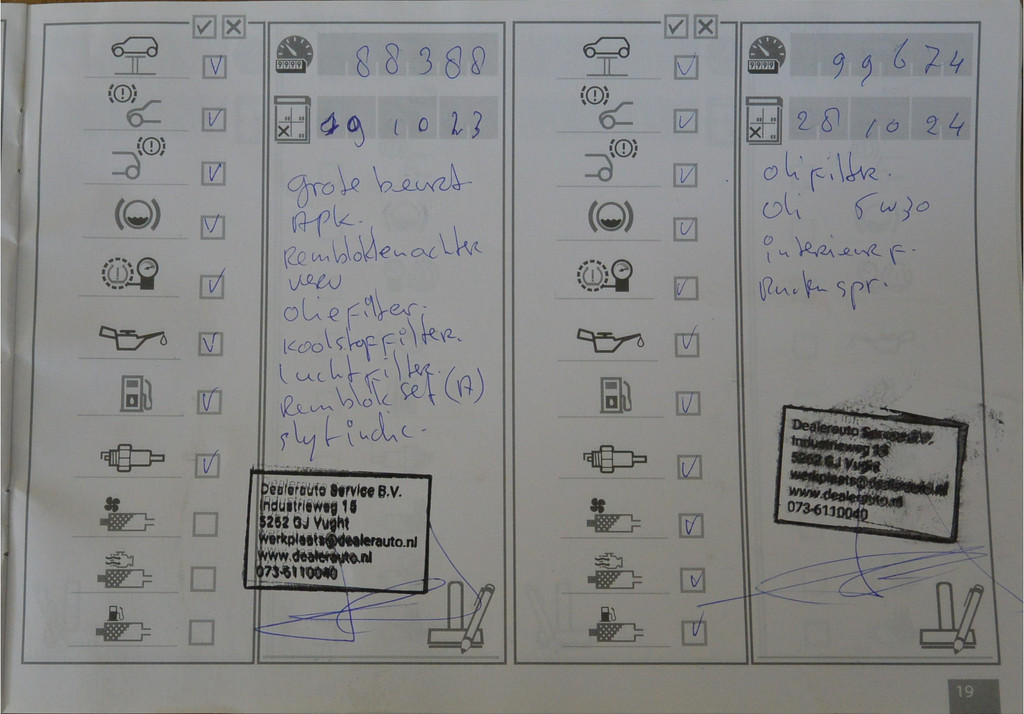 9999
88388
19 10 23
grote beurt
APK.
Remblokken achter
vew
oliefilter,
Koolstoffilter.
luchtfilter.
Remblok set (A)
slytindic.
Dealerauto Service B.V.
Industrieweg 15
5262 GJ Vught
werkplaats@dealerauto.nl
www.dealerauto.nl
073-6110040
9999
99674
28 10 24
olifilter.
oli 5W30
interieur f.
Dealerauto Service B.V.
Industrieweg 15
5262 GJ Vught
werkplaats@dealerauto.nl
www.dealerauto.nl
073-6110040
19